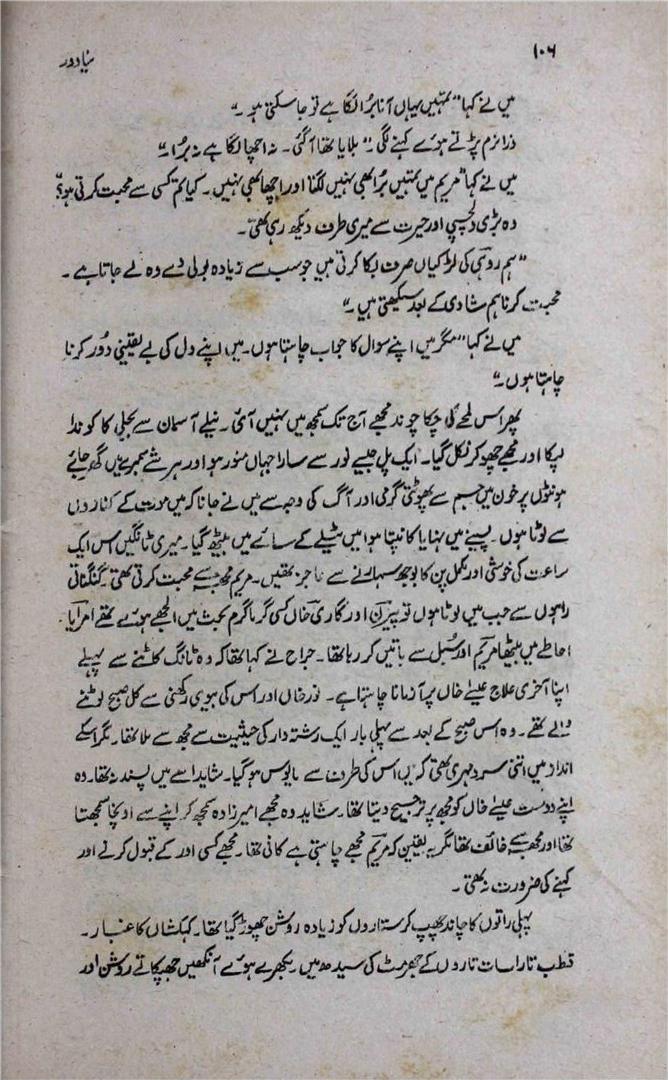 ۱۰۶
نیا دور
میں نے کہا "تمہیں یہاں آنا بُرا لگا ہے تو جا سکتی ہو۔"
ذرا نرم پڑتے ہوئے کہنے لگی۔ "بلایا تھا آ گئی۔ نہ اچھا لگا ہے نہ بُرا۔"
میں نے کہا "مریم میں تمہیں بُرا بھی نہیں لگتا اور اچھا بھی نہیں۔ کیا تم کسی سے محبت کرتی ہو؟"
وہ بڑی دلچسپی اور حیرت سے میری طرف دیکھ رہی تھی۔
"ہم روہی کی لڑکیاں صرف بکا کرتی ہیں جو سب سے زیادہ بولی دے وہ لے جاتا ہے۔
محبت کرنا ہم شادی کے بعد سیکھتی ہیں۔"
میں نے کہا "مگر میں اپنے سوال کا جواب چاہتا ہوں۔ میں اپنے دل کی بے یقینی دُور کرنا
چاہتا ہوں۔"
پھر اس لمحے کی چکا چوند مجھے آج تک سمجھ میں نہیں آئی۔ نیلے آسمان سے بجلی کا کوندا
لپکا اور مجھے چھو کر نکل گیا۔ ایک پل جیسے نور سے سارا جہاں منور ہو اور ہر شے
ہونٹوں پر خون میں جسم سے پھوٹتی گرمی اور آگ کی وجہ سے میں نے جانا کہ میں موت کے کناروں
سے لوٹا ہوں۔ پسینے میں نہایا کانپتا ہوا میں ٹیلے کے سائے میں بیٹھ گیا۔ میری ٹانگیں اس ایک
ساعت کی خوشی اور مکمل پن کا بوجھ سہارنے سے عاجز تھیں۔ مریم مجھ سے محبت کرتی تھی۔ گنگناتی
راہوں سے جب میں لوٹا ہوں تو اور خاں کسی گرما گرم بحث میں الجھے ہوئے تھے
احاطے میں بیٹھا مریم اور سُنبل سے باتیں کر رہا تھا۔ جراح نے کہا تھا کہ وہ ٹانگ کاٹنے سے پہلے
اپنا آخری علاج عیسےٰ خاں پر آزمانا چاہتا ہے۔ نور خاں اور اس کی بیوی سے کل صبح لوٹنے
والے تھے۔ وہ اس صبح کے بعد سے پہلی بار ایک رشتہ دار کی حیثیت سے مجھ سے ملا تھا۔ مگر اسکے
انداز میں اتنی سرد مہری تھی کہ میں اس کی طرف سے مایوس ہو گیا۔ شاید اسے میں پسند نہ تھا۔ وہ
اپنے دوست عیسےٰ خاں کو مجھ پر ترجیح دیتا تھا۔ شاید وہ مجھے امیر زادہ سمجھ کر اپنے سے اونچا سمجھتا
تھا اور مجھ سے خائف تھا مگر یہ یقین کہ مریم مجھے چاہتی ہے کافی تھا۔ مجھے کسی اور کے قبول کرنے اور
کہنے کی ضرورت نہ تھی۔
پہلی راتوں کا چاند چھپ کر ستاروں کو زیادہ روشن چھوڑ گیا تھا۔ کہکشاں کا غبار۔
قطب تارا سات تاروں کے جھرمٹ کی سیدھ میں بکھرے ہوئے آنکھیں جھپکاتے روشن اور